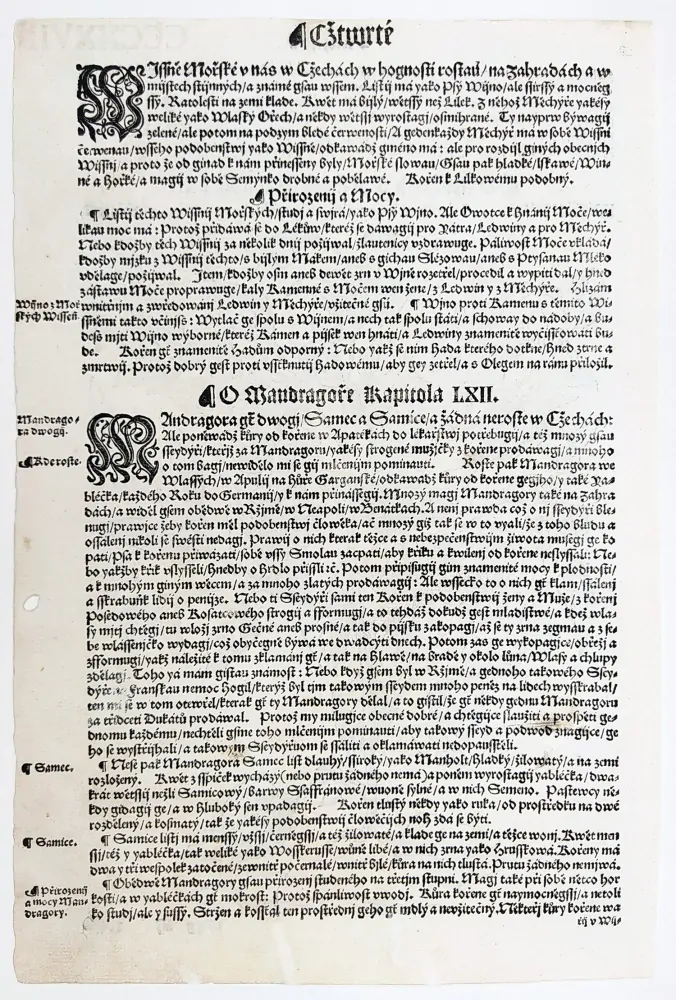 ¶ Cžtwrté
WIssně Mořské v nás w Cžechách w hognosti rostau/na Zahradách a w
mijstech stijnných/a známé gsau wssem. Listij má yako Psý Wijno/ale ssirssý a mocněg
ssý. Ratolesti na zemi klade. Kwět má bijlý/wětssý než Lilek. Z něhož Měchýře yakési
weliké yako Wlaský Ořech/a někdy wětssý wyrostagij/osmihrané. Ty nayprw býwagij
zelené/ale potom na podzym bledě čerweností/A gedenkaždý Měchýř má w sobě Wissni
čerwenau/wsseho podobenstwj yako Wissně/odkawádž gméno má: ale pro rozdijl giných obecných
Wissnij/a proto že od ginad k nám přinesseny byly/Mořské slowau/Gsau pak hladké/lskawé/Win-
né a Hořké/a magij w sobě Semýnko drobné a pobělawé. Kořen k Lilkowému podobný.
¶ Přirozenij a Mocy.
¶ Listij těchto Wissnij Mořských/studj a swjrá/yako Psý Wjno. Ale Owotce k hnánij Moče/we-
likau moc má: Protož přidáwá se do Lékůw/kteréž se dawagij pro Játra/Ledwiny a pro Měchýř.
Nebo kdožby těch Wissnij za několik dnij požijwal/žlautenicy vzdrawuge. Páliwost Moče vkládá/
kdožby mijzku z Wissnij těchto/s bijlým Makem/aneb s gichau Slézowau/aneb s Ptysanau Mléko
vdělage/požijwal. Jtem/kdožby osm aneb dewět zrn w Wjně rozetřel/procedil a wypiti dal/y hned
zástawu Moče proprawuge/kaly Kamenné s Močem wen žene/z Ledwin y z Měchýře. Hlizám
Wijno z Moř wnitřnijm a zwředowánij Ledwin y Měchýře/vžitečné gsú. ¶ Wijno proti Kamenu s těmito Wi-
ských Wissen. ssněmi takto včinijss: Wytlač ge spolu s Wijnem/a nech tak spolu státi/a schoway do nádoby/a bu-
dess mijti Wijno wýborné/kteréž Kámen a pijsek wen hnáti/a Ledwiny znamenitě wyčisťowati bu-
de. Kořen gt znamenitě Hadům odporný: Nebo yakž se njm Hada kterého dotkne/hned ztrne a
zmrtwij. Protož dobrý gest proti vsstknutij Hadowému/aby gey zetřel/a s Olegem na ránu přiložil.
¶ O Mandragoře Kapitola LXII.
Mandrago-
ra dwogij.
MAndragora gt dwogj/Samec a Samice/a žádná neroste w Cžechách:
Ale poněwadž kůry od kořene w Apatékách do lékařstwj potřebugij/a též mnozý gsau
sseydýři/kteřijž za Mandragoru/yakési strogené mužijčky z kořene prodáwagij/a mnoho
¶ Kde roste.
o tom bagj/newidělo mi se gij mlčenijm pominauti. Roste pak Mandragora we
Wlassých/w Apulij na Hůře Garganské/odkawadž kůry od kořene gegijho/y také Ya-
bléčka/každého Roku do Germanij/y k nám přinássegij. Mnozý magj Mandragory také na Zahra
dách/a widěl gsem obědwě w Ržjmě/w Neapoli/w Benátkách. A nenj prawda což o nj sseydýři ble-
nugj/prawjce žeby kořen měl podobenstwj člowěka/ač mnozý giž tak se w to vyali/že z toho bludu a
ossálenj nikoli se swésti nedagj. Prawij o nich kterak těžce a s nebezpečenstwijm žiwota musegj ge ko
pati/Psa k kořenu přiwázati/sobě vssy Smolau zacpati/aby křiku a kwilenj od kořene neslyssali: Ne-
bo yakžby křik vslysseli/hnedby o Hrdlo přissli &c. Potom přípisugij gim znamenité mocy k plodnosti/
a k mnohým giným wěcem/a za mnoho zlatých prodáwagij: Ale wssecko to o nich gt klam/ssálenj
a sskrabuňk lidij o penijze. Nebo ti Sseydýři sami ten Kořen k podobenstwij ženy a Muže/z kořenj
Posedowého aneb Kosatcowého strogij a fformugj/a to tehdáž dokudž gest mladistwé/a kdež wla-
sy mjtj chtěgj/tu wložj zrno Gečné aneb prosné/a tak do pijsku zakopagj/až se ty zrna zegmau a z se-
be wlassenijčko wydagj/což obyčegně býwá we dwadcýti dnech. Potom zas ge wykopagjce/obřežj a
zfformugj/yakž náležité k tomu zklamánj gt/a tak na Hlawě/na bradě y okolo lůna/Wlasy a chlupy
zdělagj. Toho yá mám gistau známost: Nebo když gsem byl w Ržjmě/a gednoho takowého Ssey-
dýře Franskau nemoc hogil/kterýž byl tjm takowým sseydem mnoho peněz na lidech wysskrabal/
ten mi se w tom otewřel/kterak gt ty Mandragory dělal/a to gistil/že gt někdy gednu Mandragoru
za třidceti Dukátů prodáwal. Protož my milugjce obecné dobré/a chtěgijce slaužiti a prospěti ge-
dnomu každému/nechtěli gsme toho mlčenijm pominauti/aby takowý sseyd a podwod znagijce/ge-
ho se wystřijhali/a takowým Sseydýřům se ssáliti a oklamáwati nedopausstěli.
¶ Samec.
¶ Nese pak Mandragora Samec list dlauhý/ssiroký/yako Manholt/hladký/žilowatý/a na zemi
rozložený. Kwět z sspičék wycházý (nebo prutu žádného nemá) a poněm wyrostagij yabléčka/dwa-
krát wětssij nežli Samicowý/barwy Ssaffránowé/wuoně sylné/a w nich Semeno. Pastewcy ně-
kdy gidagij ge/a w hluboký sen vpadagij. Kořen tlustý někdy yako ruka/od prostředku na dwé
rozdělený/a kosmatý/tak že yakési podobenstwij člowěčijch noh zdá se býti.
¶ Samice.
¶ Samice listij má menssý/vžssij/černěgssij/a též žilowaté/a klade ge na zemi/a těžce wonj. Kwět men
ssij/též y yabléčka/tak weliké yako Wosskeruše/wůně libé/a w nich zrna yako Hrusskowá. Kořeny má
dwa y tři wespolek zatočené/zewnitř počernalé/wnitř bijlé/kůra na nich tlustá. Prutu žádného nemjwá.
¶ Přirozenij
a mocy Man-
dragory.
¶ Obědwě Mandragory gsau přirozenj studeného na třetjm stupni. Magj také při sobě něco hor
kosti/a w yabléčkách gt mokrost: Protož spánliwost vwodj. Kůra kořene gt naymocněgssj/a netoli
ko studj/ale y sussý. Stržen a kossťál ten prostřednj geho gt mdlý a nevžitečný. Někteřj kůry kořene wa
řij v Wij-